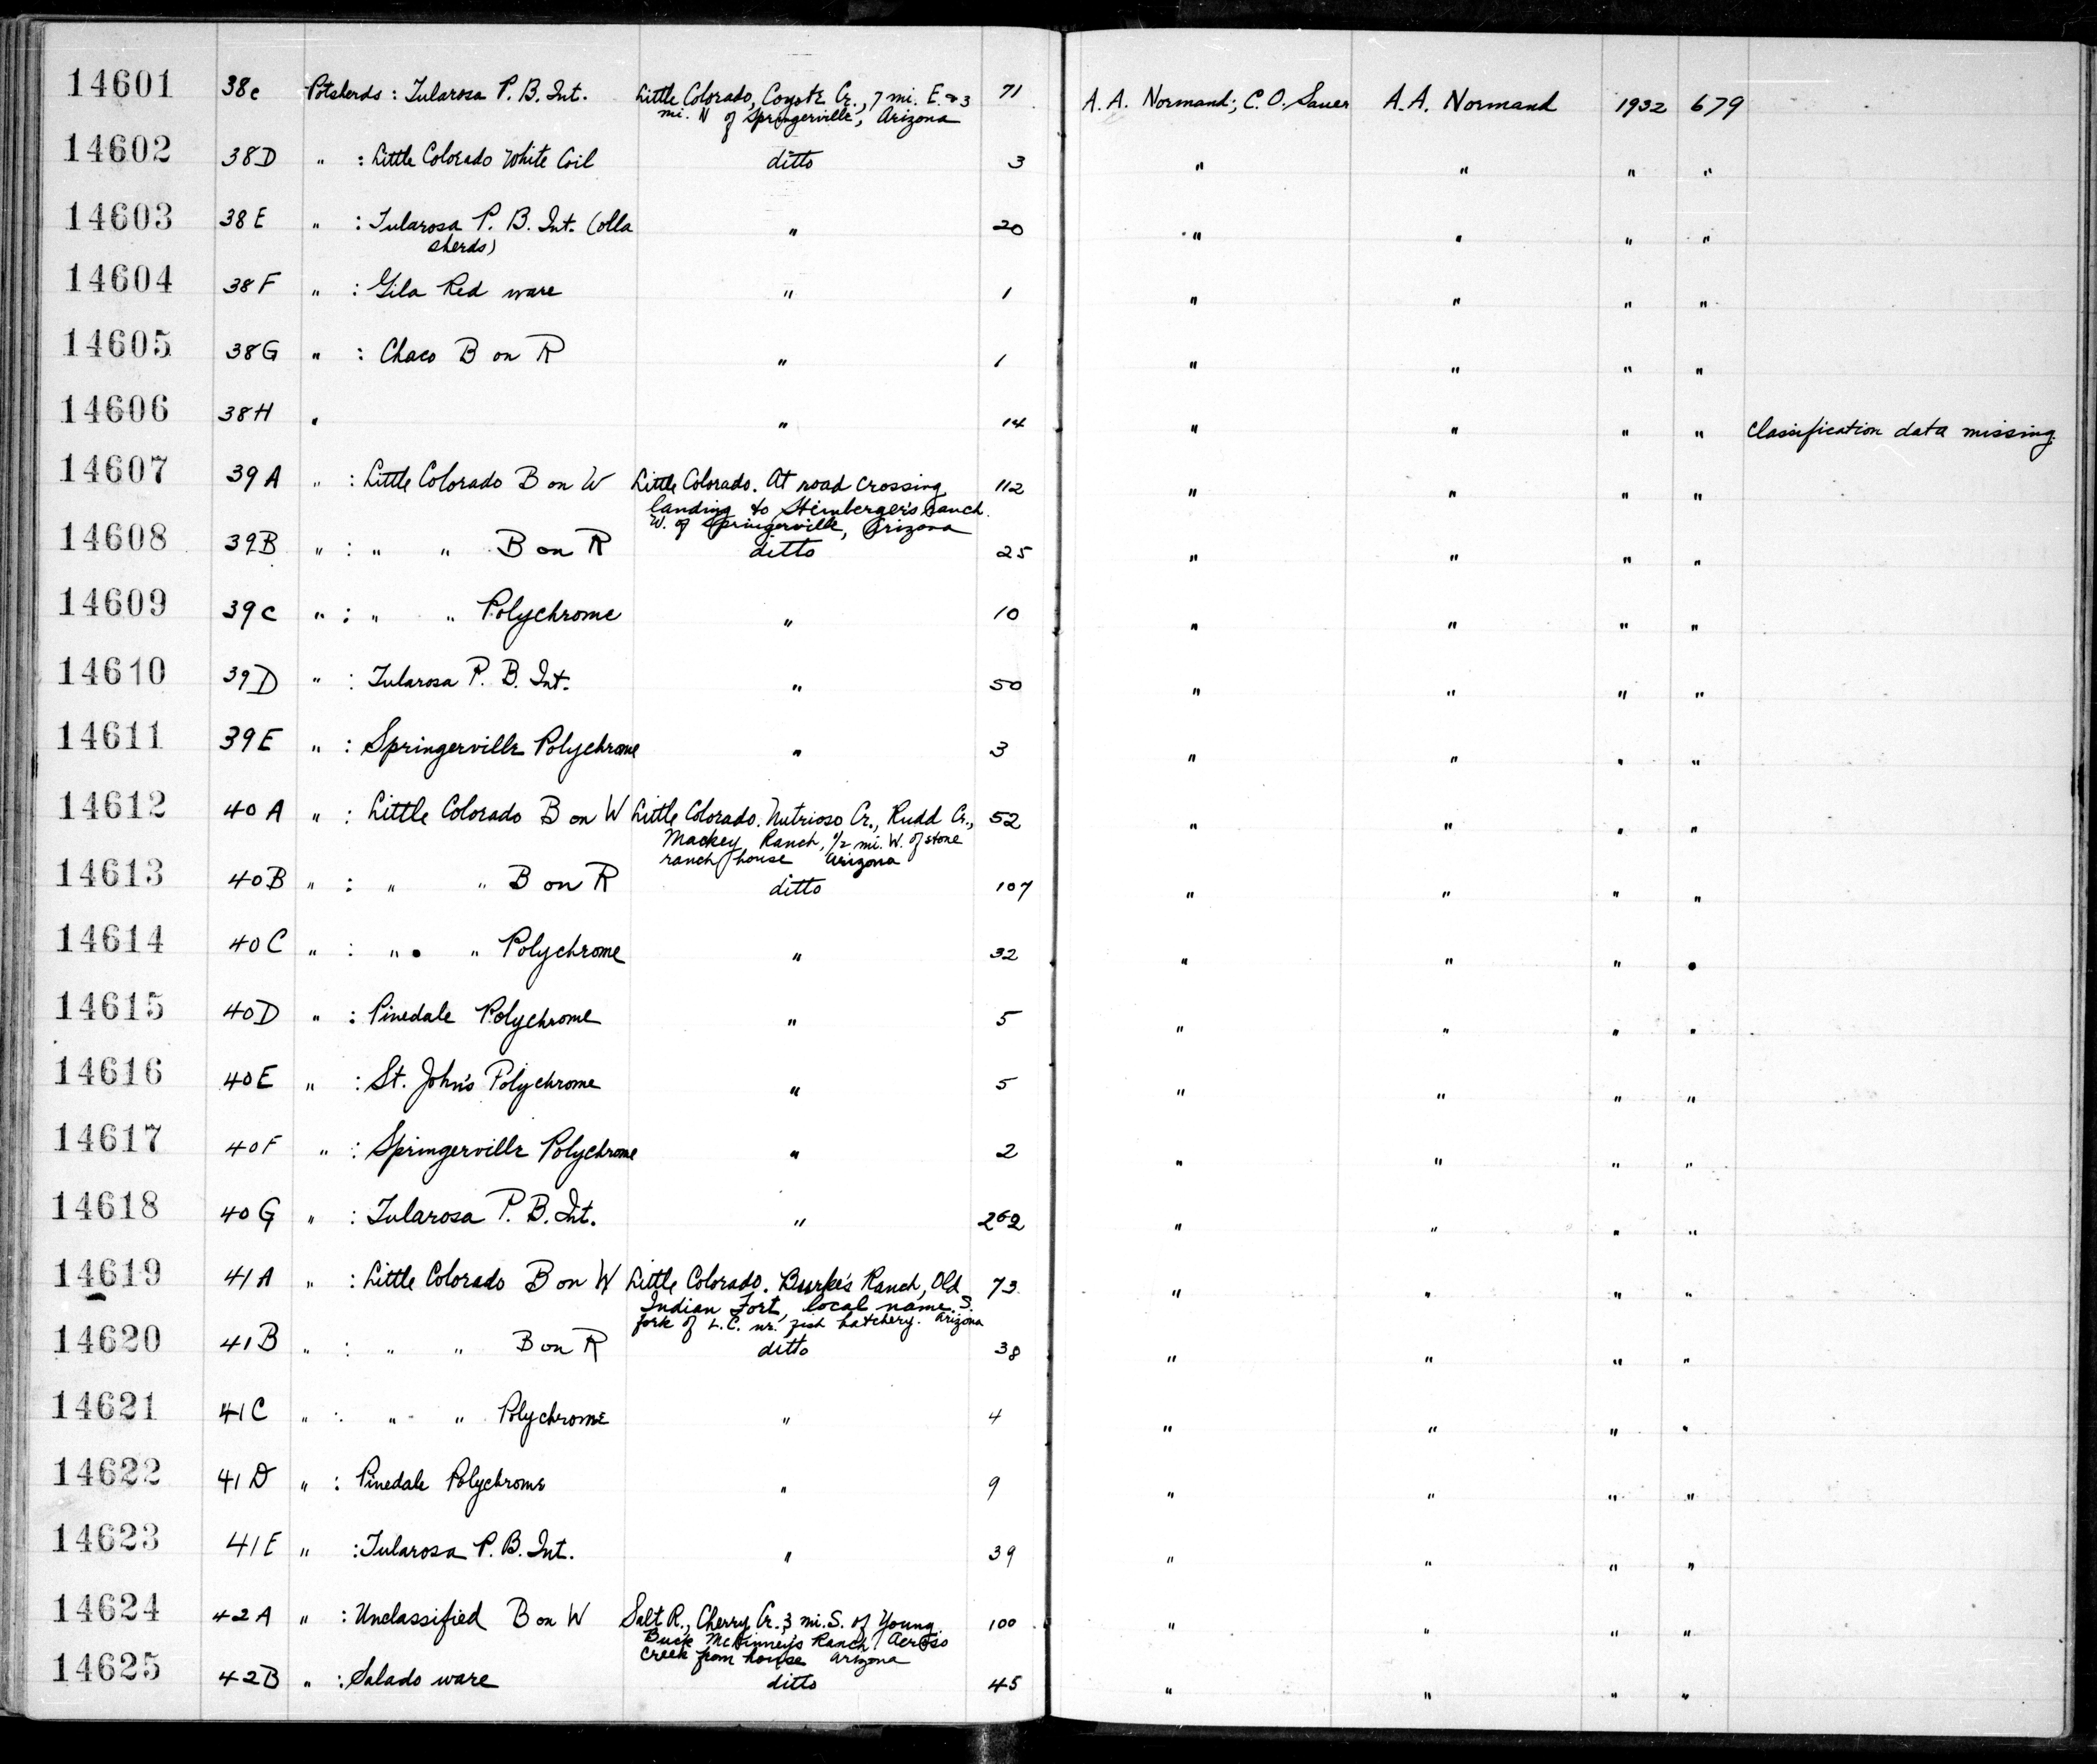 14601 38c Potsherds : Tularosa P. B. Int. Little Colorado, Coyote Cr., 7 mi. E. & 3 71 A. A. Normand; C. O. Sauer A. A. Normand 1932 679
mi. N of Springerville, Arizona
14602 38D " : Little Colorado White Coil ditto 3 " " " "
14603 38E " : Tularosa P. B. Int. (olla " 20 " " " "
sherds)
14604 38F " : Gila Red ware " 1 " " " "
14605 38G " : Chaco B on R " 1 " " " "
14606 38H " " 14 " " " " Classification data missing.
14607 39A " : Little Colorado B on W Little Colorado. At road crossing 112 " " " "
landing to Steinberger's ranch.
W. of Springerville, Arizona
14608 39B " : " " B on R ditto 25 " " " "
14609 39C " : " " Polychrome " 10 " " " "
14610 39D " : Tularosa P. B. Int. " 50 " " " "
14611 39E " : Springerville Polychrome " 3 " " " "
14612 40A " : Little Colorado B on W Little Colorado. Nutrioso Cr., Rudd Cr., 52 " " " "
Mackey Ranch, 1/2 mi. W. of stone
ranch house Arizona
14613 40B " : " " B on R ditto 107 " " " "
14614 40C " : " " Polychrome " 32 " " " "
14615 40D " : Pinedale Polychrome " 5 " " " "
14616 40E " : St. John's Polychrome " 5 " " " "
14617 40F " : Springerville Polychrome " 2 " " " "
14618 40G " : Tularosa P. B. Int. " 262 " " " "
14619 41A " : Little Colorado B on W Little Colorado. Burke's Ranch, Old 73 " " " "
Indian Fort, local name. S.
fork of L.C. nr. fish hatchery. Arizona
14620 41B " : " " B on R ditto 38 " " " "
14621 41C " : " " Polychrome " 4 " " " "
14622 41D " : Pinedale Polychrome " 9 " " " "
14623 41E " : Tularosa P. B. Int. " 39 " " " "
14624 42A " : Unclassified B on W Salt R., Cherry Cr. 3 mi. S. of Young. 100 " " " "
Buck McKinney's Ranch Across
creek from house Arizona
14625 42B " : Salado ware ditto 45 " " " "